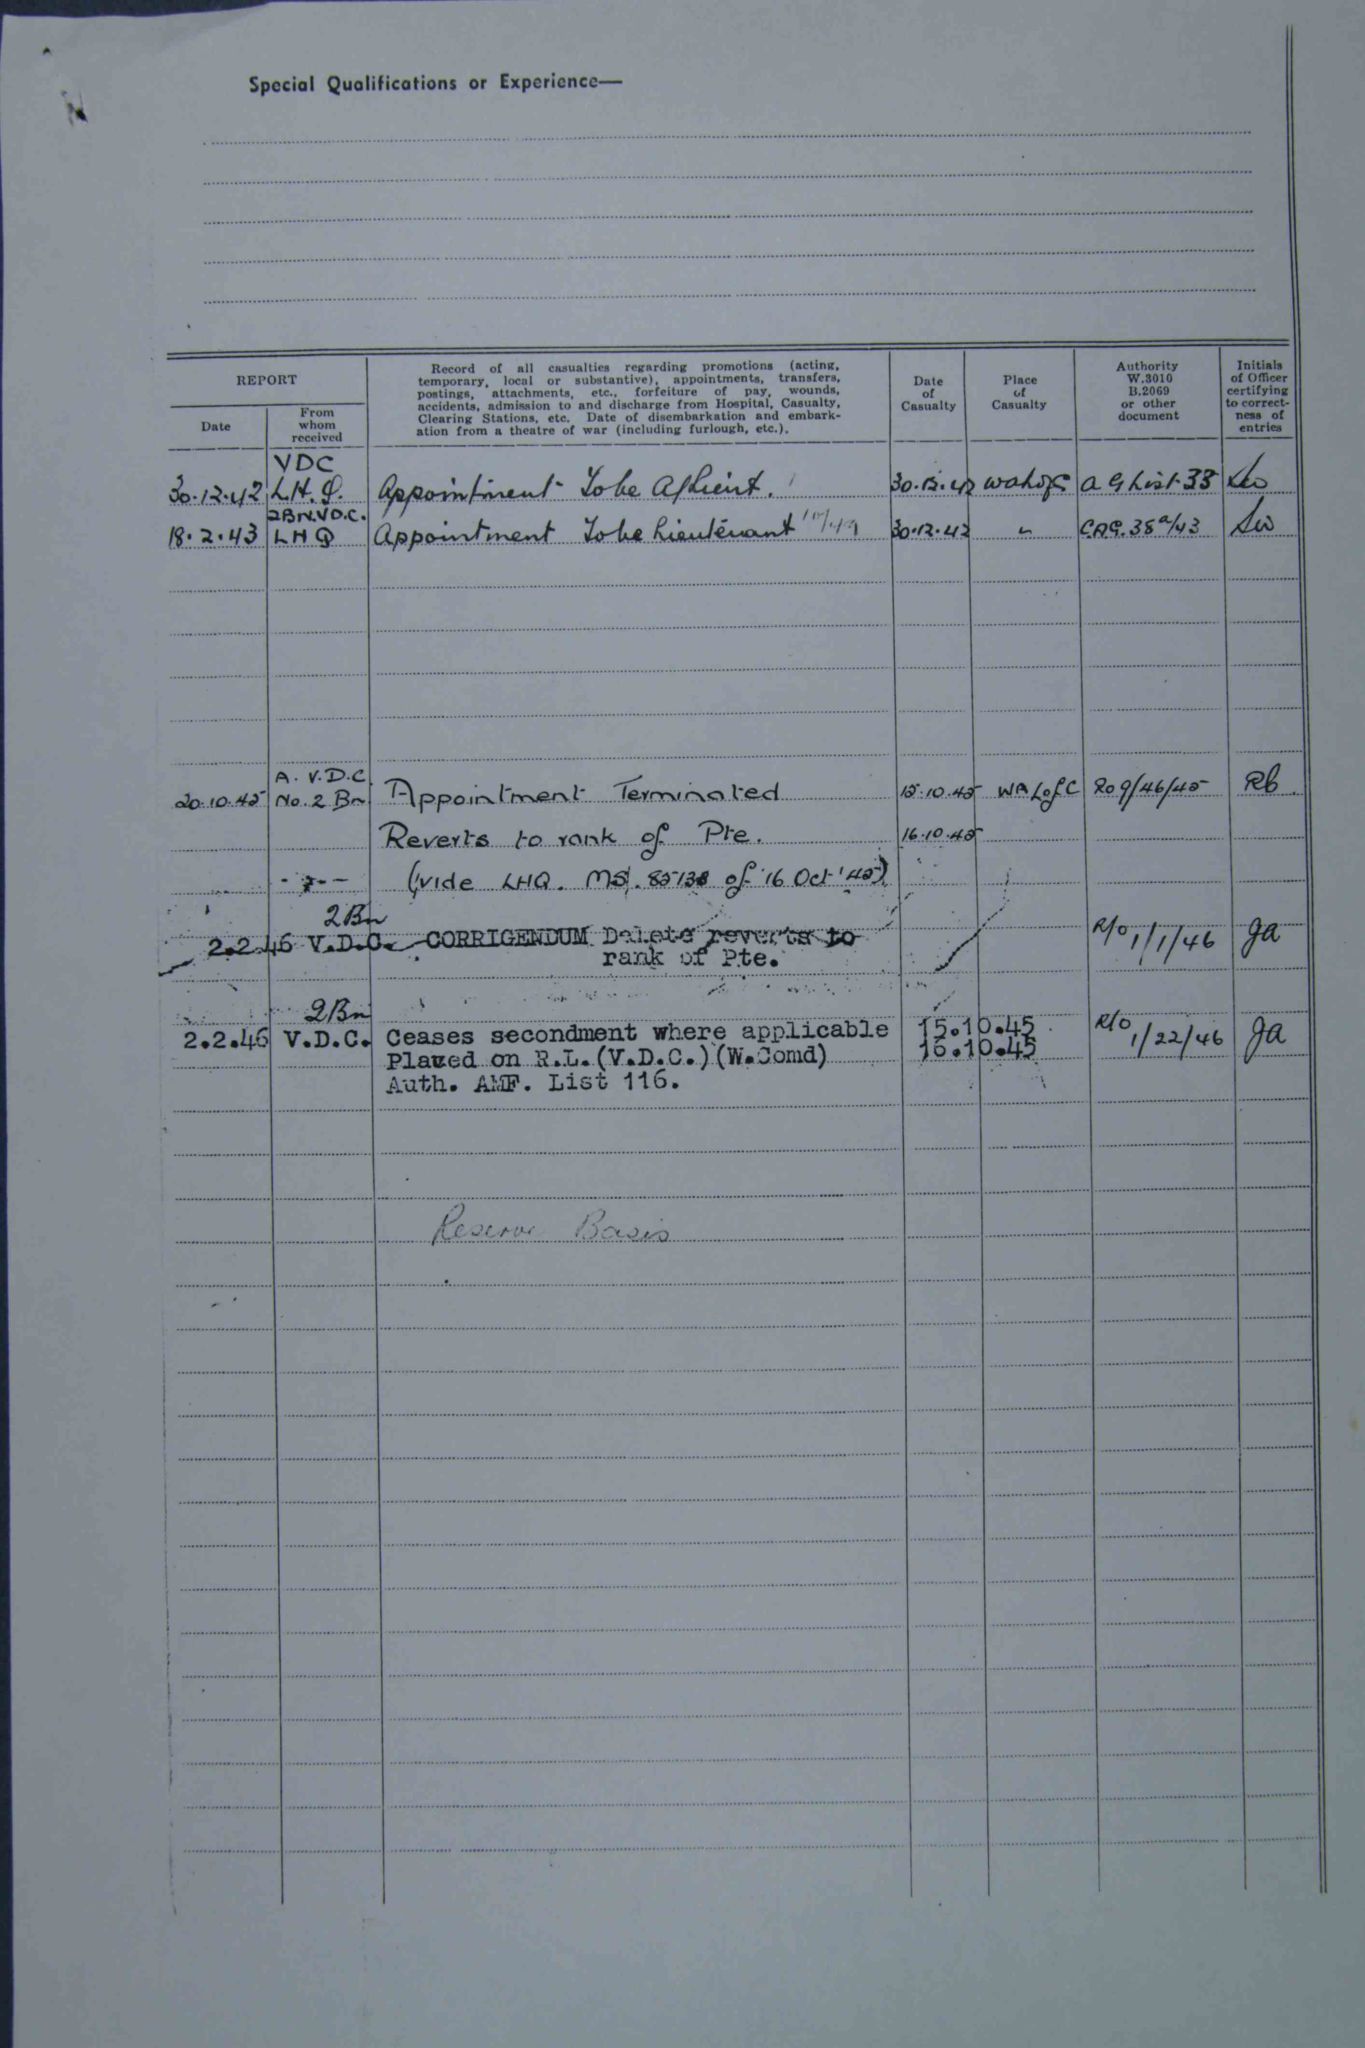 Special Qualifications or Experience—
REPORT
Date
From
whom
received
Record of all casualties regarding promotions (acting,
temporary, local or substantive), appointments, transfers,
postings, attachments, etc., forfeiture of pay, wounds,
accidents, admission to and discharge from Hospital, Casualty,
Clearing Stations, etc. Date of disembarkation and embark-
ation from a theatre of war (including furlough, etc.).
Date
of
Casualty
Place
of
Casualty
Authority
W.3010
B.2069
or other
document
Initials
of Officer
certifying
to correct-
ness of
entries
VDC
30.12.42 L.H.Q. Appointment To be A/Lieut. 30.12.42 WALofC A G List 33
2BN.V.D.C.
18.2.43 LHQ Appointment To be Lieutenant 30.12.42 " 38a/43
A. V.D.C.
20.10.45 No. 2 Bn Appointment Terminated 15.10.45 WA LofC RO 9/46/45 Rb
Reverts to rank of Pte. 16.10.45
(vide LHQ. MS. 85138 of 16 Oct '45)
2Bn
2.2.46 V.D.C. CORRIGENDUM Delete reverts to R/O 1/1/46 Ja
rank of Pte.
2Bn
2.2.46 V.D.C. Ceases secondment where applicable 15.10.45 R/O 1/22/46 Ja
Placed on R.L.(V.D.C.)(W.Comd) 16.10.45
Auth. AMF. List 116.
Reserve Basis